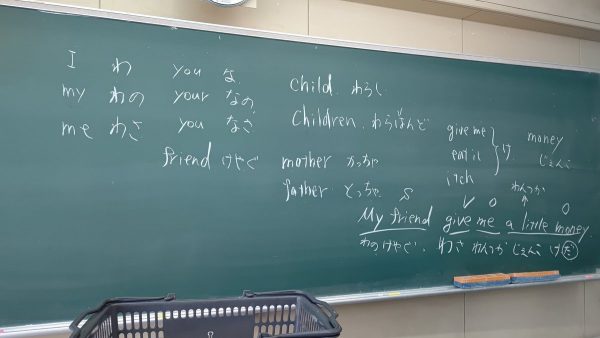 I わ you な
my わの your なの
me わさ you なさ
friend けやぐ
child わらし
Children わらはんど
mother かっちゃ
father とっちゃ
give me
eat it
itch
け
money
じぇんこ
わんつか
S V O O
My friend give me a little money
わのけやぐ、わさ わんつか じぇんこ けだ